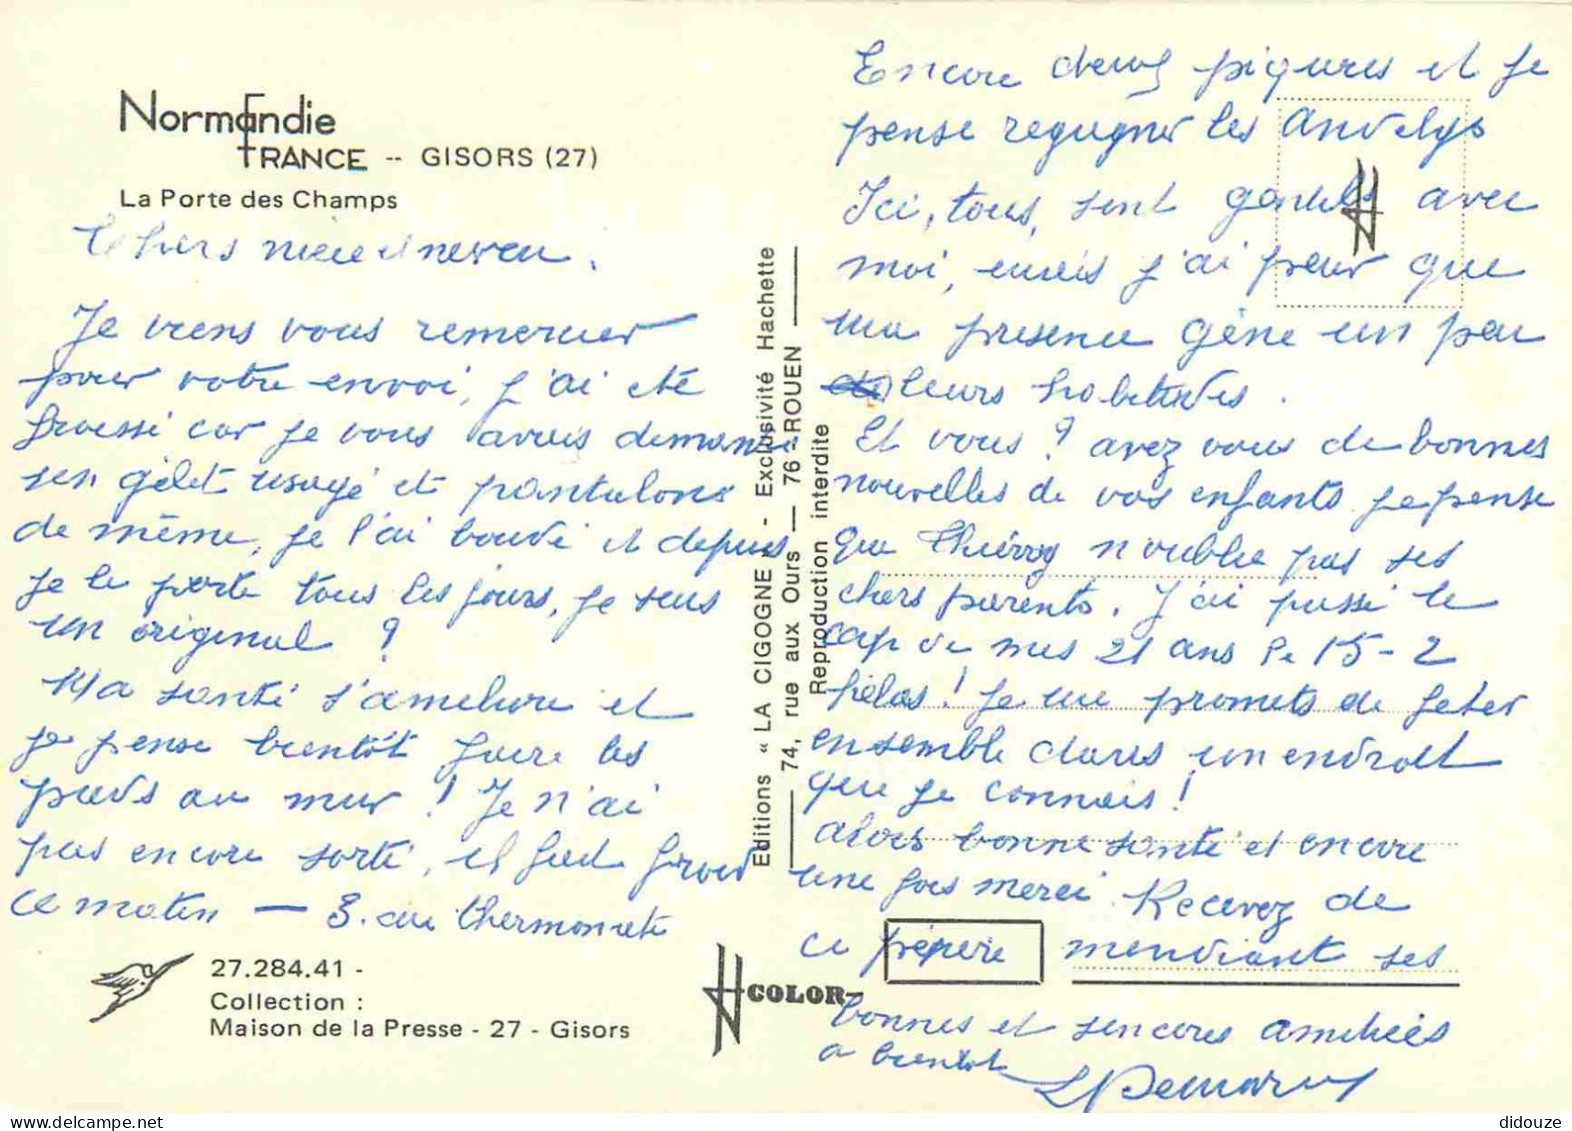 Normandie
FRANCE -- GISORS (27)
La Porte des Champs
chers niece et neveu.
Je viens vous remercier
pour votre envoi, j'ai été
froissé car je vous avais demandé
un gilet usagé et pantalons
de même, je l'ai boudé et depuis
je le porte tous les jours, je suis
un original ?
Ma santé s'améliore et
je pense bientôt faire les
pieds au mur ! Je n'ai
pas encore sorti, il fait froid
ce matin — 3. au thermometre
27.284.41 -
Collection :
Maison de la Presse - 27 - Gisors
Editions « LA CIGOGNE » - Exclusivité Hachette
74, rue aux Ours — 76 - ROUEN
Reproduction interdite
COLOR
Encore deux piqures et je
pense regagner les Andelys
Ici, tous, sont gentils avec
moi, mais j'ai peur que
ma presence gène un peu
leurs habitudes.
Et vous ? avez vous de bonnes
nouvelles de vos enfants je pense
que Thierry n'oublie pas ses
chers parents. J'ai passé le
cap de mes 21 ans le 15-2
hélas ! je me promets de feter
ensemble dans un endroit
que je connais !
alors bonne santé et encore
une fois merci. Recevez de
ce pépère mendiant ses
bonnes et sincères amitiés
a bientot